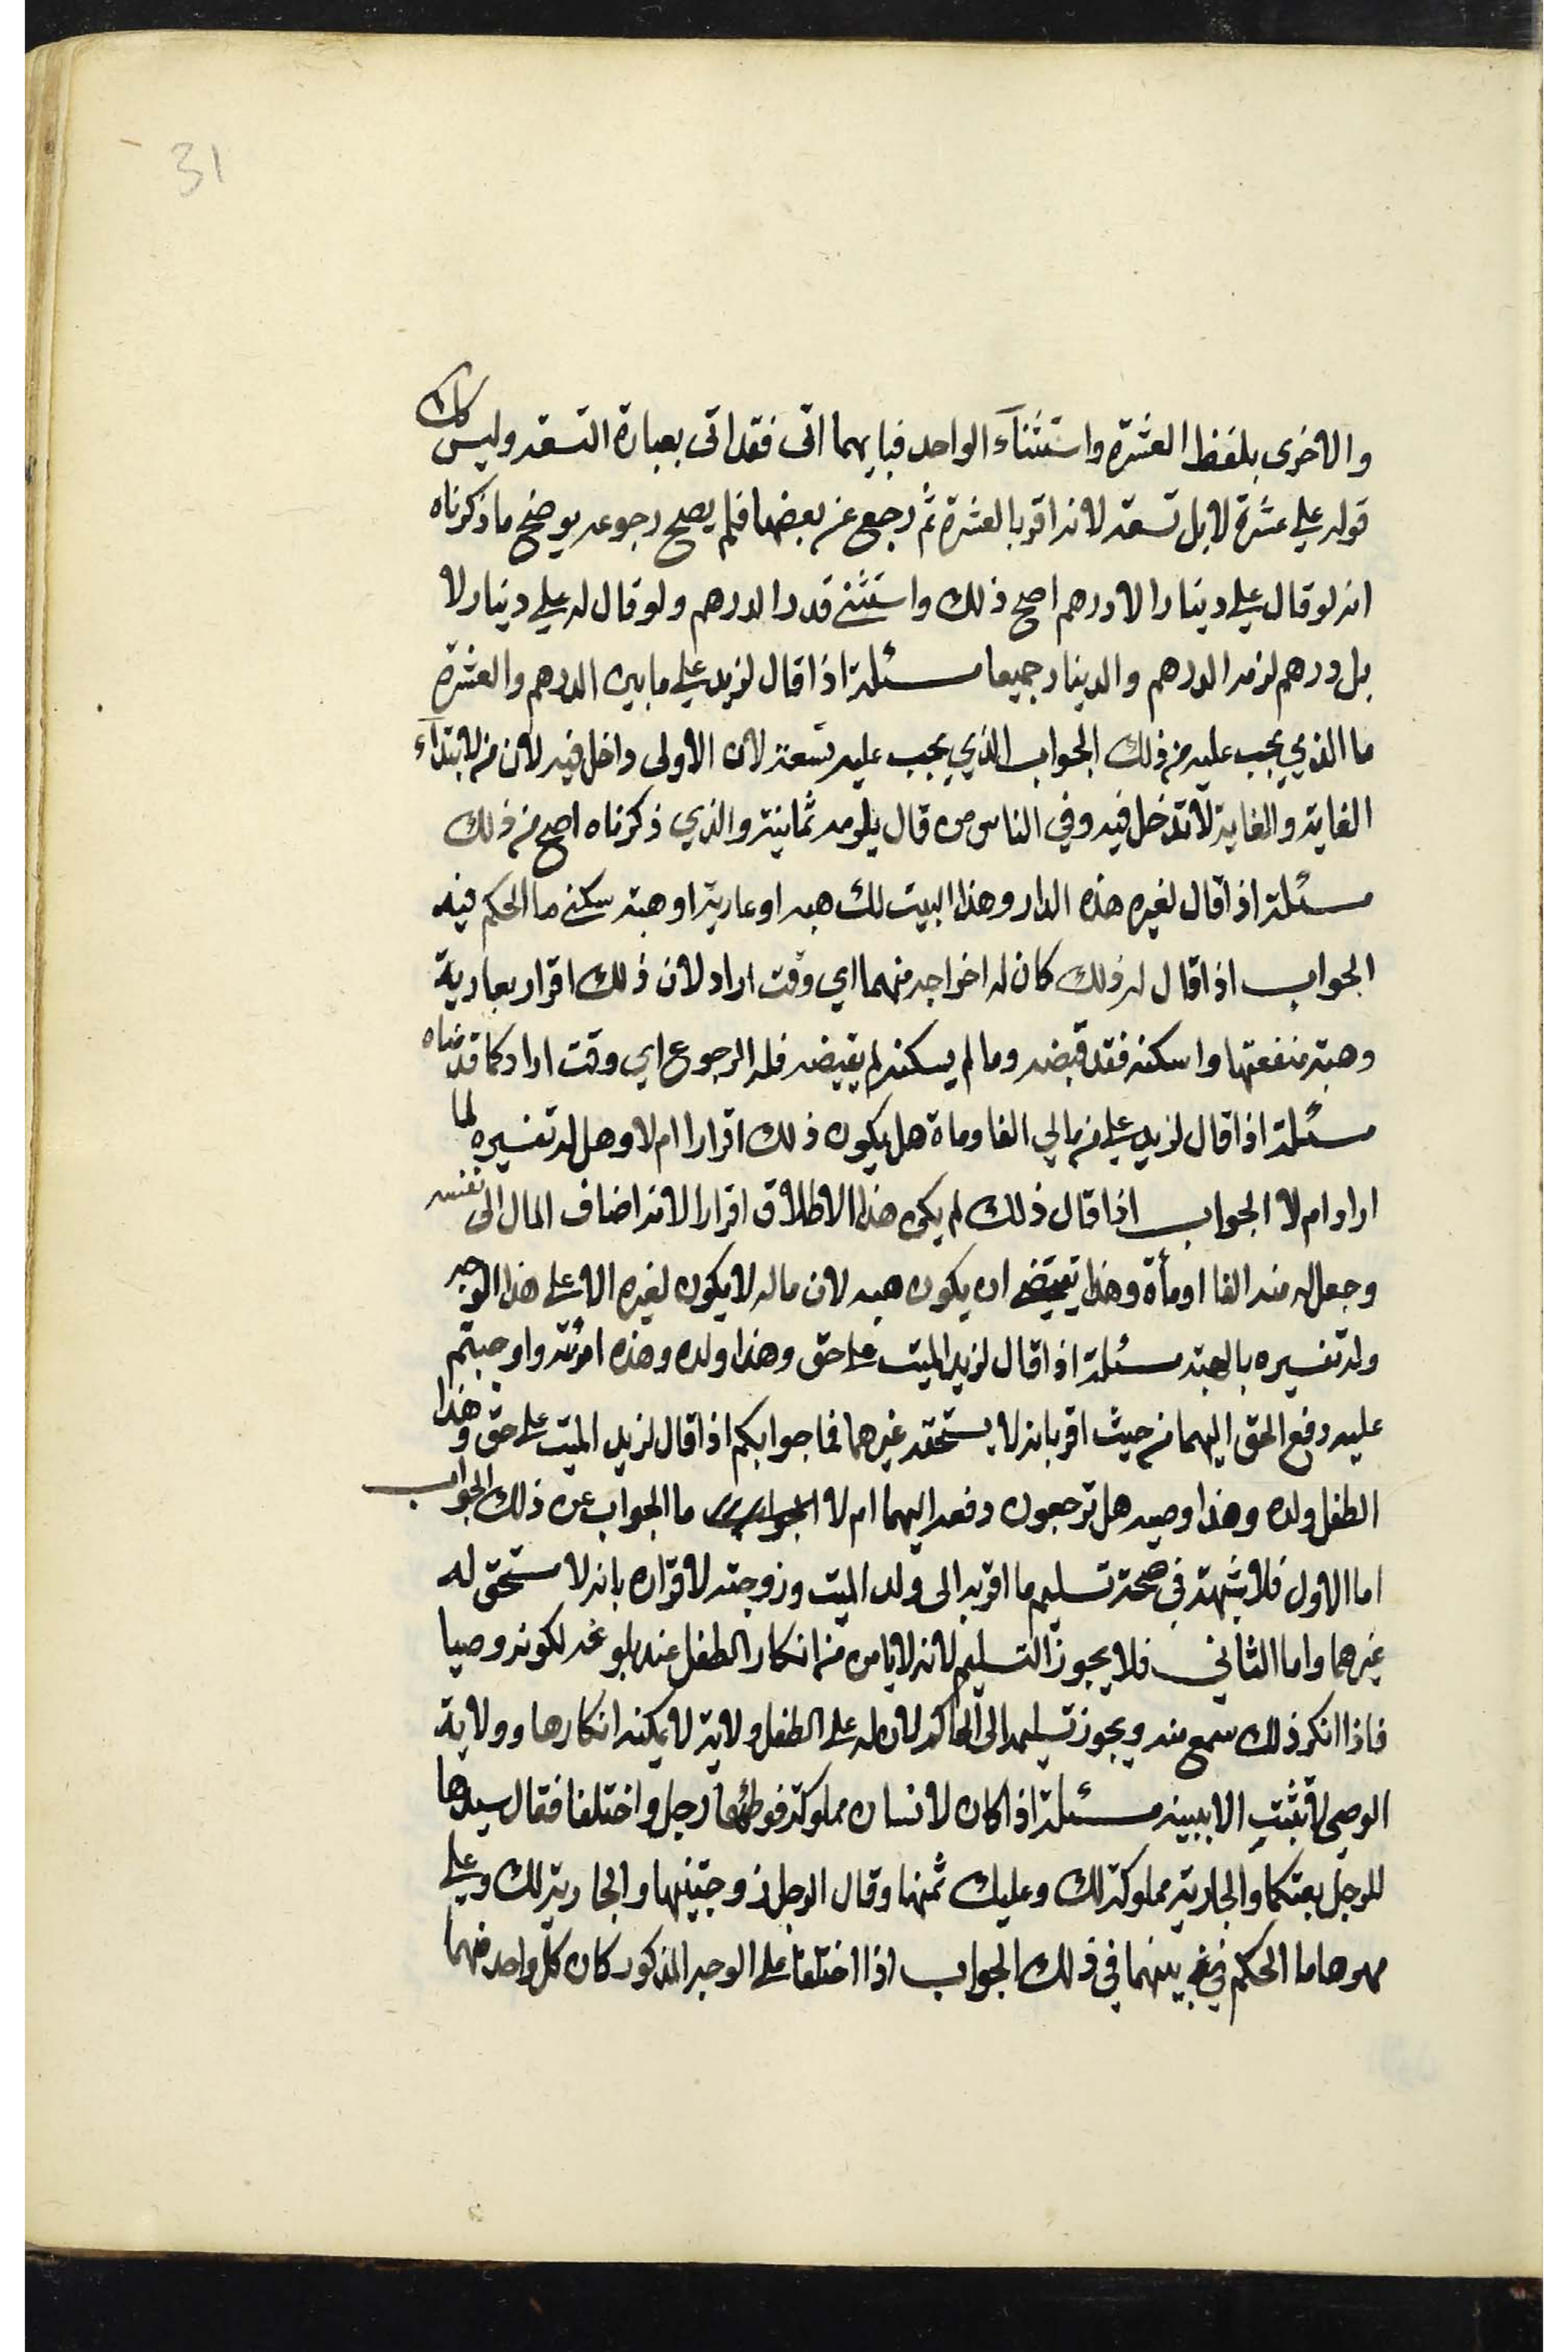 31
والاخرى بلفظ العشرة واستثنآء الواحد فبايهما اتى فقد اتى بعبارة التسعة وليس كك
قوله علي عشرة لا بل تسعة لانه اقر بالعشرة ثم رجع عن بعضها فلم يصح رجوعه يوضح ما ذكرناه
انه لو قال علي دينارا الا درهم اصح ذلك واستثنى قدر الدرهم ولو قال له علي دينار لا
بل درهم لزمه الدرهم والدينار جميعا مسئلة اذا قال لزيد علي ما بين الدرهم والعشرة
ما الذي يجب عليه من ذلك الجواب الذي يجب عليه تسعة لان الاولى داخل فيه لان من لابتدآء
الغاية والغاية لا تدخل فيه وفي الناس من قال يلزمه ثمانية والذي ذكرناه اصح من ذلك
مسئلة اذا قال لغيره هذه الدار وهذا البيت لك هبه او عارية او هبة سكنى ما الحكم فيه
الجواب اذا قال له ذلك كان له اخراجه منهما اي وقت اراد لان ذلك اقرار بعارية
وهبة منفعتها واسكنه فقد قبضه وما لم يسكنه لم يقبضه فله الرجوع اي وقت اراد كما قدمناه
مسئلة اذا قال لزيد علي من مالي الفا وماة هل يكون ذلك اقرارا ام لا وهل له تفسيره لما
اراد ام لا الجواب اذا قال ذلك لم يكن هذا الاطلاق اقرارا لانه اضاف المال الى نفسه
وجعل له منه الفا او مأة وهذا يقتضي ان يكون هبه لان ماله لا يكون لغيره الا على هذا الوجه
وله تفسيره بالهبة مسئلة اذا قال لزيد الميت علي حق وهذا ولده وهذه امرئته واوجبتم
عليه دفع الحق اليهما من حيث اقر بانه لا يستحقه غيرهما فما جوابكم اذا قال لزيد الميت علي حق وهذا
الطفل ولده وهذا وصيه هل ترجعون دفعه اليهما ام لا الجواب ما الجواب عن ذلك الجواب
اما الاول فلا شبهة في صحة تسليم ما اقر به الى ولد الميت وزوجته لاقراره بانه لا مستحق له
غيرهما واما الثاني فلا يجوز التسليم لانه لا يامن من انكار الطفل عند بلوغه لكونه وصيا
فاذا انكر ذلك سمع منه ويجوز تسليمه الى الحاكم لان له على الطفل ولاية لا يمكنه انكارها وولاية
الوصي لا تثبت الا ببينة مسئلة اذا كان لانسان مملوكة فوطئها رجل واختلفا فقال سيدها
للرجل بعتكها والجارية مملوكة لك وعليك ثمنها وقال الرجل زوجتنيها والجارية لك وعلي
مهرها ما الحكم بينهما في ذلك الجواب اذا اختلفا على الوجه المذكور كان كل واحد منهما